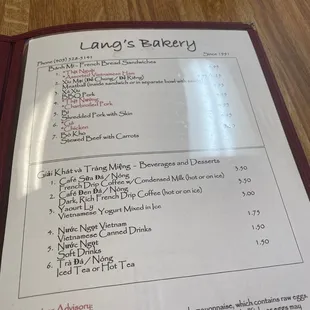 Lang's Bakery
Bánh Mì - French Bread Sandwiches
1. *Thịt Nguội
Meatball (made sandwich or in separate bowl with
3. Xíu Xíu
BBQ Pork
4. *Thịt Nướng
*Charbroiled Pork
5. Bì
Shredded Pork with Skin
6. *Gà
*Chicken
7. Bò Kho
Stewed Beef with Carrots
Giải Khát và Tráng Miệng - Beverages and Desserts
1. Café Sữa Đá / Nóng 3.50
French Drip Coffee w/ Condensed Milk (hot or on ice)
2. Café Đen Đá / Nóng 3.25
Dark, Rich French Drip Coffee (hot or on ice)
3. Yaourt Ly 3.00
Vietnamese Yogurt Mixed in Ice
4. Nước Ngọt Vietnam 1.75
Vietnamese Canned Drinks
5. Nước Ngọt 1.50
Soft Drinks
6. Trà Đá / Nóng 1.50
Iced Tea or Hot Tea
Advisory
mayonnaise, which contains raw eggs.
eggs may